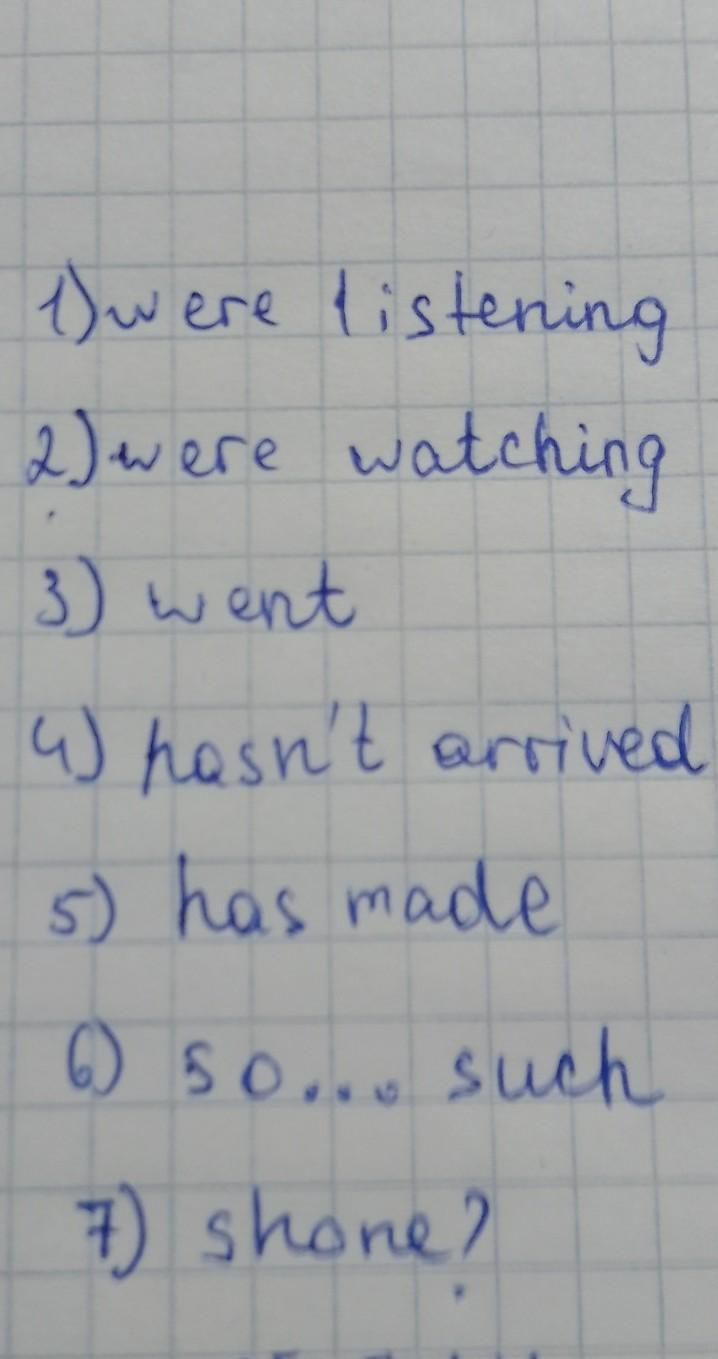 1) were listening
2) were watching
3) went
4) hasn't arrived
5) has made
6) so... such
7) shone?